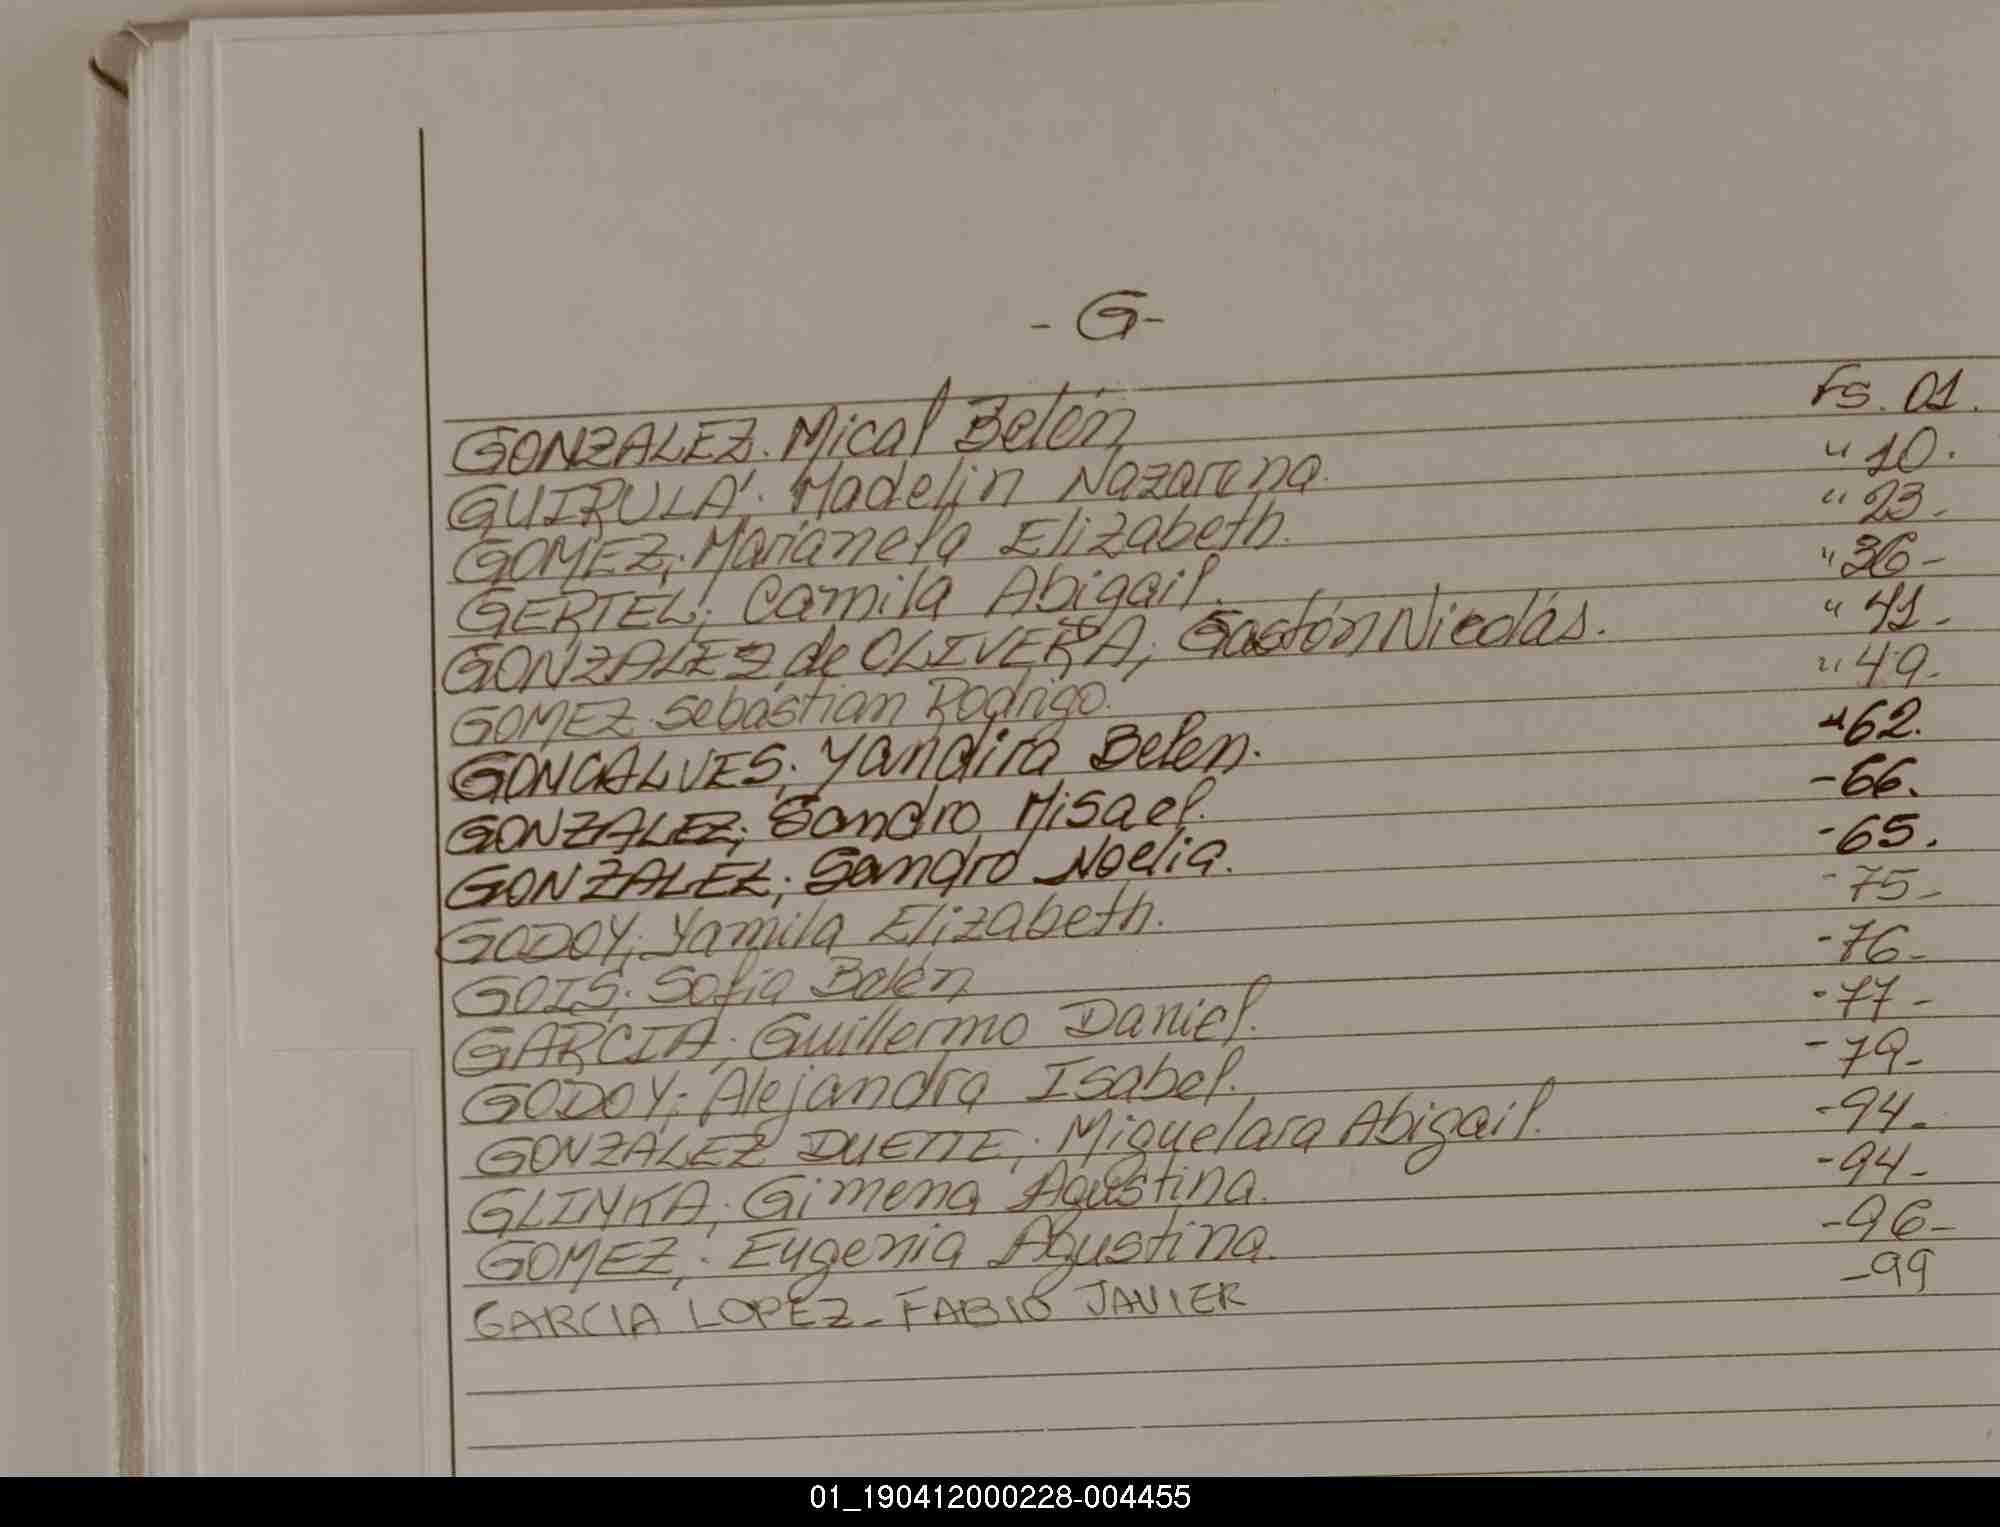 - G -
GONZALEZ. Mical Belén Fs. 01.
GUIRULA'. Madelin Nazarena. " 10.
GOMEZ; Marianela Elizabeth. " 23-
GERTEL; Camila Abigail. " 36-
GONZALEZ de OLIVERA; Gastón Nicolás. " 41-
GOMEZ. Sebastian Rodrigo. " 49-
GONCALVES; Yandira Belen. " 62.
GONZALEZ; Sandro Misael. - 66.
GONZALEZ; Sandro Noelia. - 65.
GODOY; Yamila Elizabeth. - 75-
GOIS; Sofia Belén - 76-
GARCIA; Guillermo Daniel. - 77-
GODOY; Alejandra Isabel. - 79-
GONZALEZ DUETTE; Miguelara Abigail. - 94-
GLINKA; Gimena Agustina. - 94-
GOMEZ; Eugenia Agustina. - 96-
GARCIA LOPEZ - FABIO JAVIER - 99
01_190412000228-004455